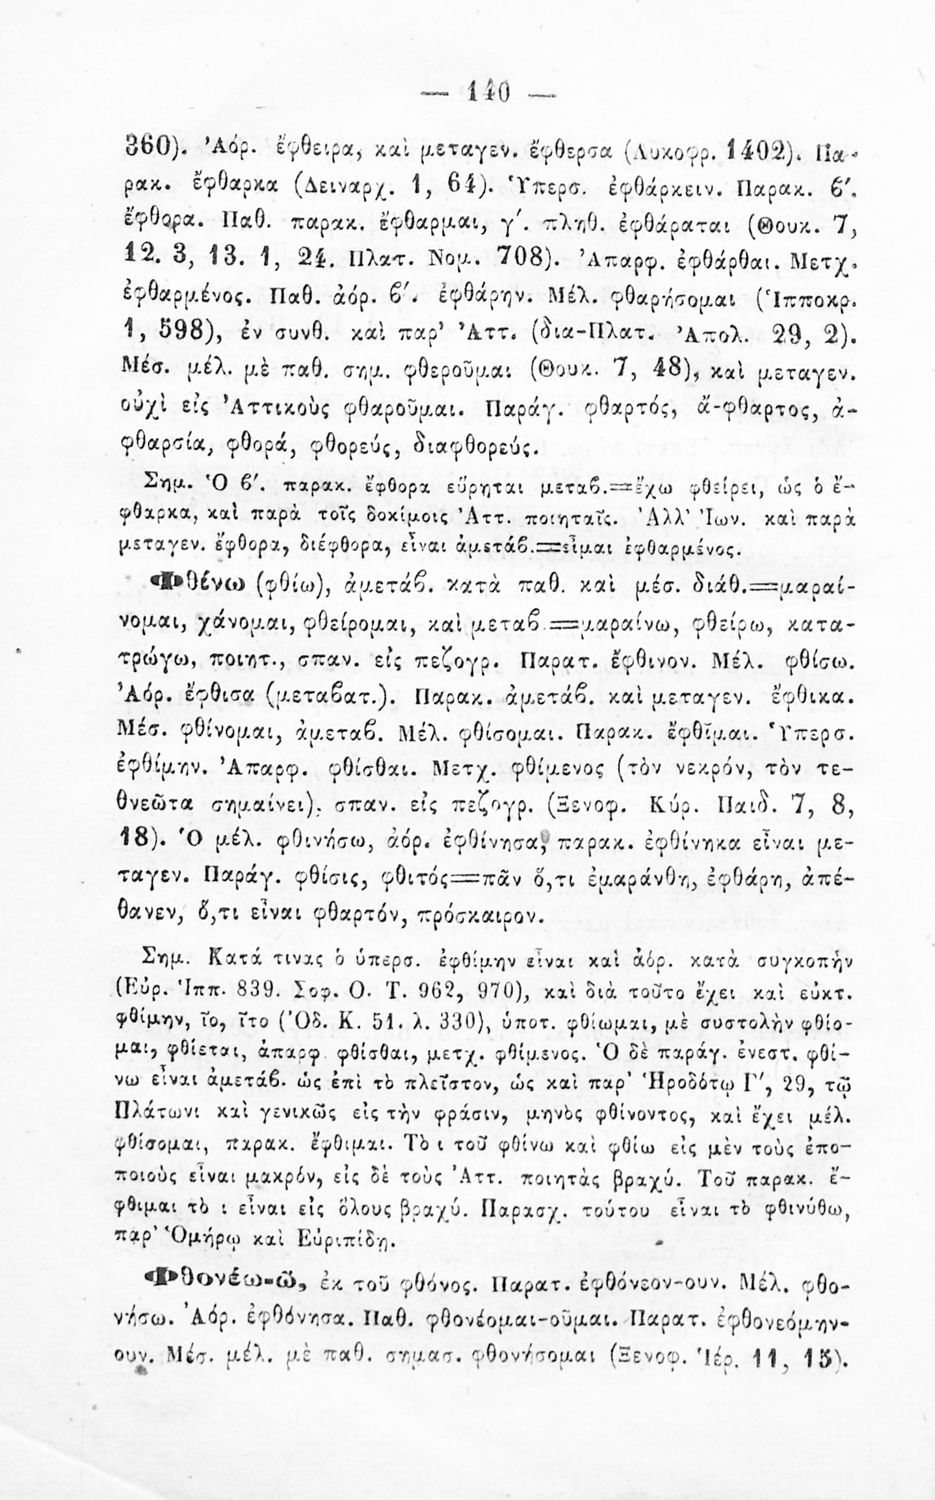 — 140 —
360). Ἀόρ. ἔφθειρα, καὶ μεταγεν. ἔφθερσα (Λυκοφρ. 1402). Πα-
ρακ. ἔφθαρκα (Δειναρχ. 1, 64). Ὑπερσ. ἐφθάρκειν. Παρακ. ϐ′.
ἔφθορα. Παθ. παρακ. ἔφθαρμαι, γ′. πληθ. ἐφθάραται (Θουκ. 7,
12. 3, 13. 1, 24. Πλατ. Νομ. 708). Ἀπαρφ. ἐφθάρθαι. Μετχ.
ἐφθαρμένος. Παθ. ἀόρ. ϐ′. ἐφθάρην. Μέλ. φθαρήσομαι (Ἱπποκρ.
1, 598), ἐν συνθ. καὶ παρ' Ἀττ. (δια-Πλατ. Ἀπολ. 29, 2).
Μέσ. μέλ. μὲ παθ. σημ. φθεροῦμαι (Θουκ. 7, 48), καὶ μεταγεν.
οὐχὶ εἰς Ἀττικοὺς φθαροῦμαι. Παράγ. φθαρτός, ἄ-φθαρτος, ἀ-
φθαρσία, φθορά, φθορεύς, διαφθορεύς.
Σημ. Ὁ ϐ′. παρακ. ἔφθορα εὕρηται μεταϐ.=ἔχω φθείρει, ὡς ὁ ἔ-
φθαρκα, καὶ παρὰ τοῖς δοκίμοις Ἀττ. ποιηταῖς. Ἀλλ' Ἰων. καὶ παρὰ
μεταγεν. ἔφθορα, διέφθορα, εἶναι ἀμετάϐ.=εἶμαι ἐφθαρμένος.
Φθένω (φθίω), ἀμετάϐ. κατὰ παθ. καὶ μέσ. διάθ.=μαραί-
νομαι, χάνομαι, φθείρομαι, καὶ μεταϐ.=μαραίνω, φθείρω, κατα-
τρώγω, ποιητ., σπαν. εἰς πεζογρ. Παρατ. ἔφθινον. Μέλ. φθίσω.
Ἀόρ. ἔφθισα (μεταϐατ.). Παρακ. ἀμετάϐ. καὶ μεταγεν. ἔφθικα.
Μέσ. φθίνομαι, ἀμεταϐ. Μέλ. φθίσομαι. Παρακ. ἔφθῐμαι. Ὑπερσ.
ἐφθίμην. Ἀπαρφ. φθίσθαι. Μετχ. φθίμενος (τὸν νεκρόν, τὸν τε-
θνεῶτα σημαίνει). σπαν. εἰς πεζογρ. (Ξενοφ. Κύρ. Παιδ. 7, 8,
18). Ὁ μέλ. φθινήσω, ἀόρ. ἐφθίνησα, παρακ. ἐφθίνηκα εἶναι με-
ταγεν. Παράγ. φθίσις, φθιτός=πᾶν ὅ,τι ἐμαράνθη, ἐφθάρη, ἀπέ-
θανεν, ὅ,τι εἶναι φθαρτόν, πρόσκαιρον.
Σημ. Κατά τινας ὁ ὑπερσ. ἐφθίμην εἶναι καὶ ἀόρ. κατὰ συγκοπὴν
(Εὐρ. Ἱππ. 839. Σοφ. Ο. Τ. 962, 970), καὶ διὰ τοῦτο ἔχει καὶ εὐκτ.
φθίμην, ῖο, ῖτο (Ὀδ. Κ. 51. λ. 330), ὑποτ. φθίωμαι, μὲ συστολὴν φθίο-
μαι, φθίεται, ἀπαρφ. φθίσθαι, μετχ. φθίμενος. Ὁ δὲ παράγ. ἐνεστ. φθί-
νω εἶναι ἀμετάϐ. ὡς ἐπὶ τὸ πλεῖστον, ὡς καὶ παρ' Ἡροδότῳ Γ′, 29, τῷ
Πλάτωνι καὶ γενικῶς εἰς τὴν φράσιν, μηνὸς φθίνοντος, καὶ ἔχει μέλ.
φθίσομαι, παρακ. ἔφθιμαι. Τὸ ι τοῦ φθίνω καὶ φθίω εἰς μὲν τοὺς ἐπο-
ποιοὺς εἶναι μακρόν, εἰς δὲ τοὺς Ἀττ. ποιητὰς βραχύ. Τοῦ παρακ. ἔ-
φθιμαι τὸ ι εἶναι εἰς ὅλους βραχύ. Παρασχ. τούτου εἶναι τὸ φθινύθω,
παρ' Ὁμήρῳ καὶ Εὐριπίδῃ.
Φθονέω-ῶ, ἐκ τοῦ φθόνος. Παρατ. ἐφθόνεον-ουν. Μέλ. φθο-
νήσω. Ἀόρ. ἐφθόνησα. Παθ. φθονέομαι-οῦμαι. Παρατ. ἐφθονεόμην-
ουν. Μέσ. μέλ. μὲ παθ. σημασ. φθονήσομαι (Ξενοφ. Ἱέρ. 11, 15).